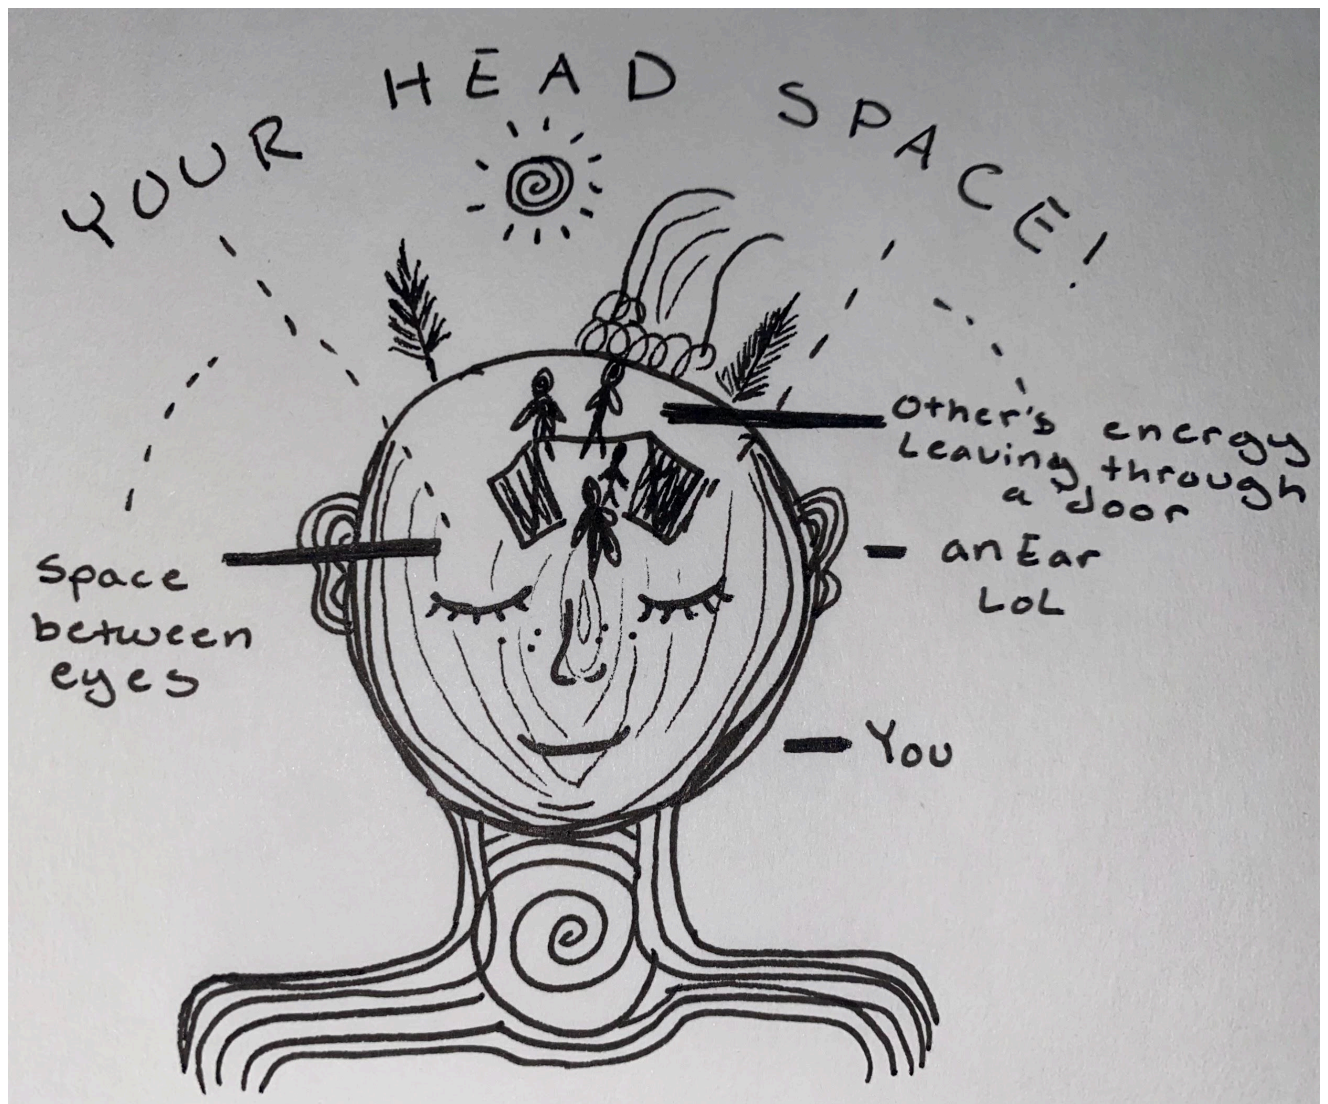 YOUR HEAD SPACE!
Other's energy
Leaving through
a door
an Ear
LOL
Space
between
eyes
You